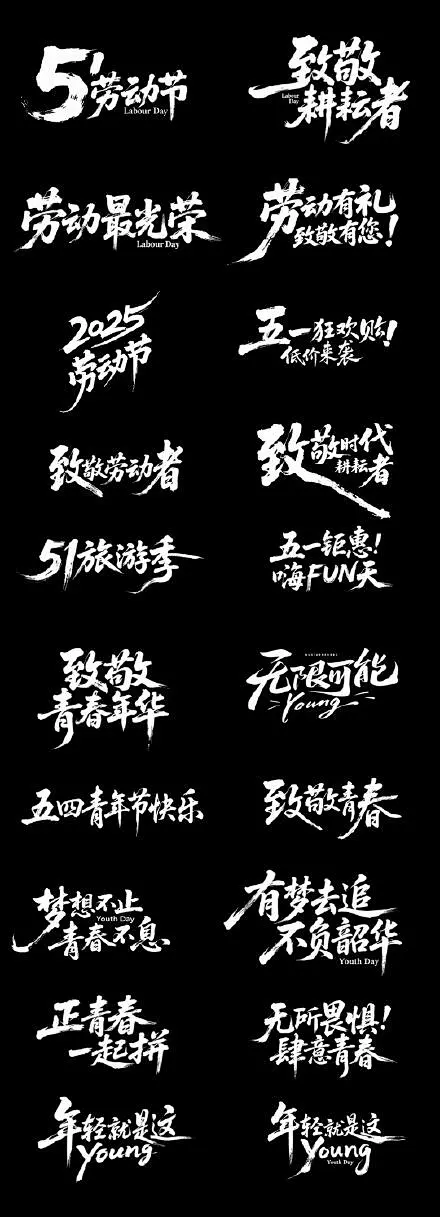 51劳动节
Labour Day
致敬
Labour
Day
耕耘者
劳动最光荣
Labour Day
劳动有礼
致敬有您!
2025
劳动节
五一狂欢购!
低价来袭
致敬劳动者
致敬时代
耕耘者
51旅游季
五一钜惠!
嗨FUN天
致敬
青春年华
无限可能
Young
五四青年节快乐
致敬青春
梦想不止
Youth Day
青春不息
有梦去追
不负韶华
Youth Day
正青春
一起拼
无所畏惧!
肆意青春
年轻就是这
Young
年轻就是这
Young
Youth Day